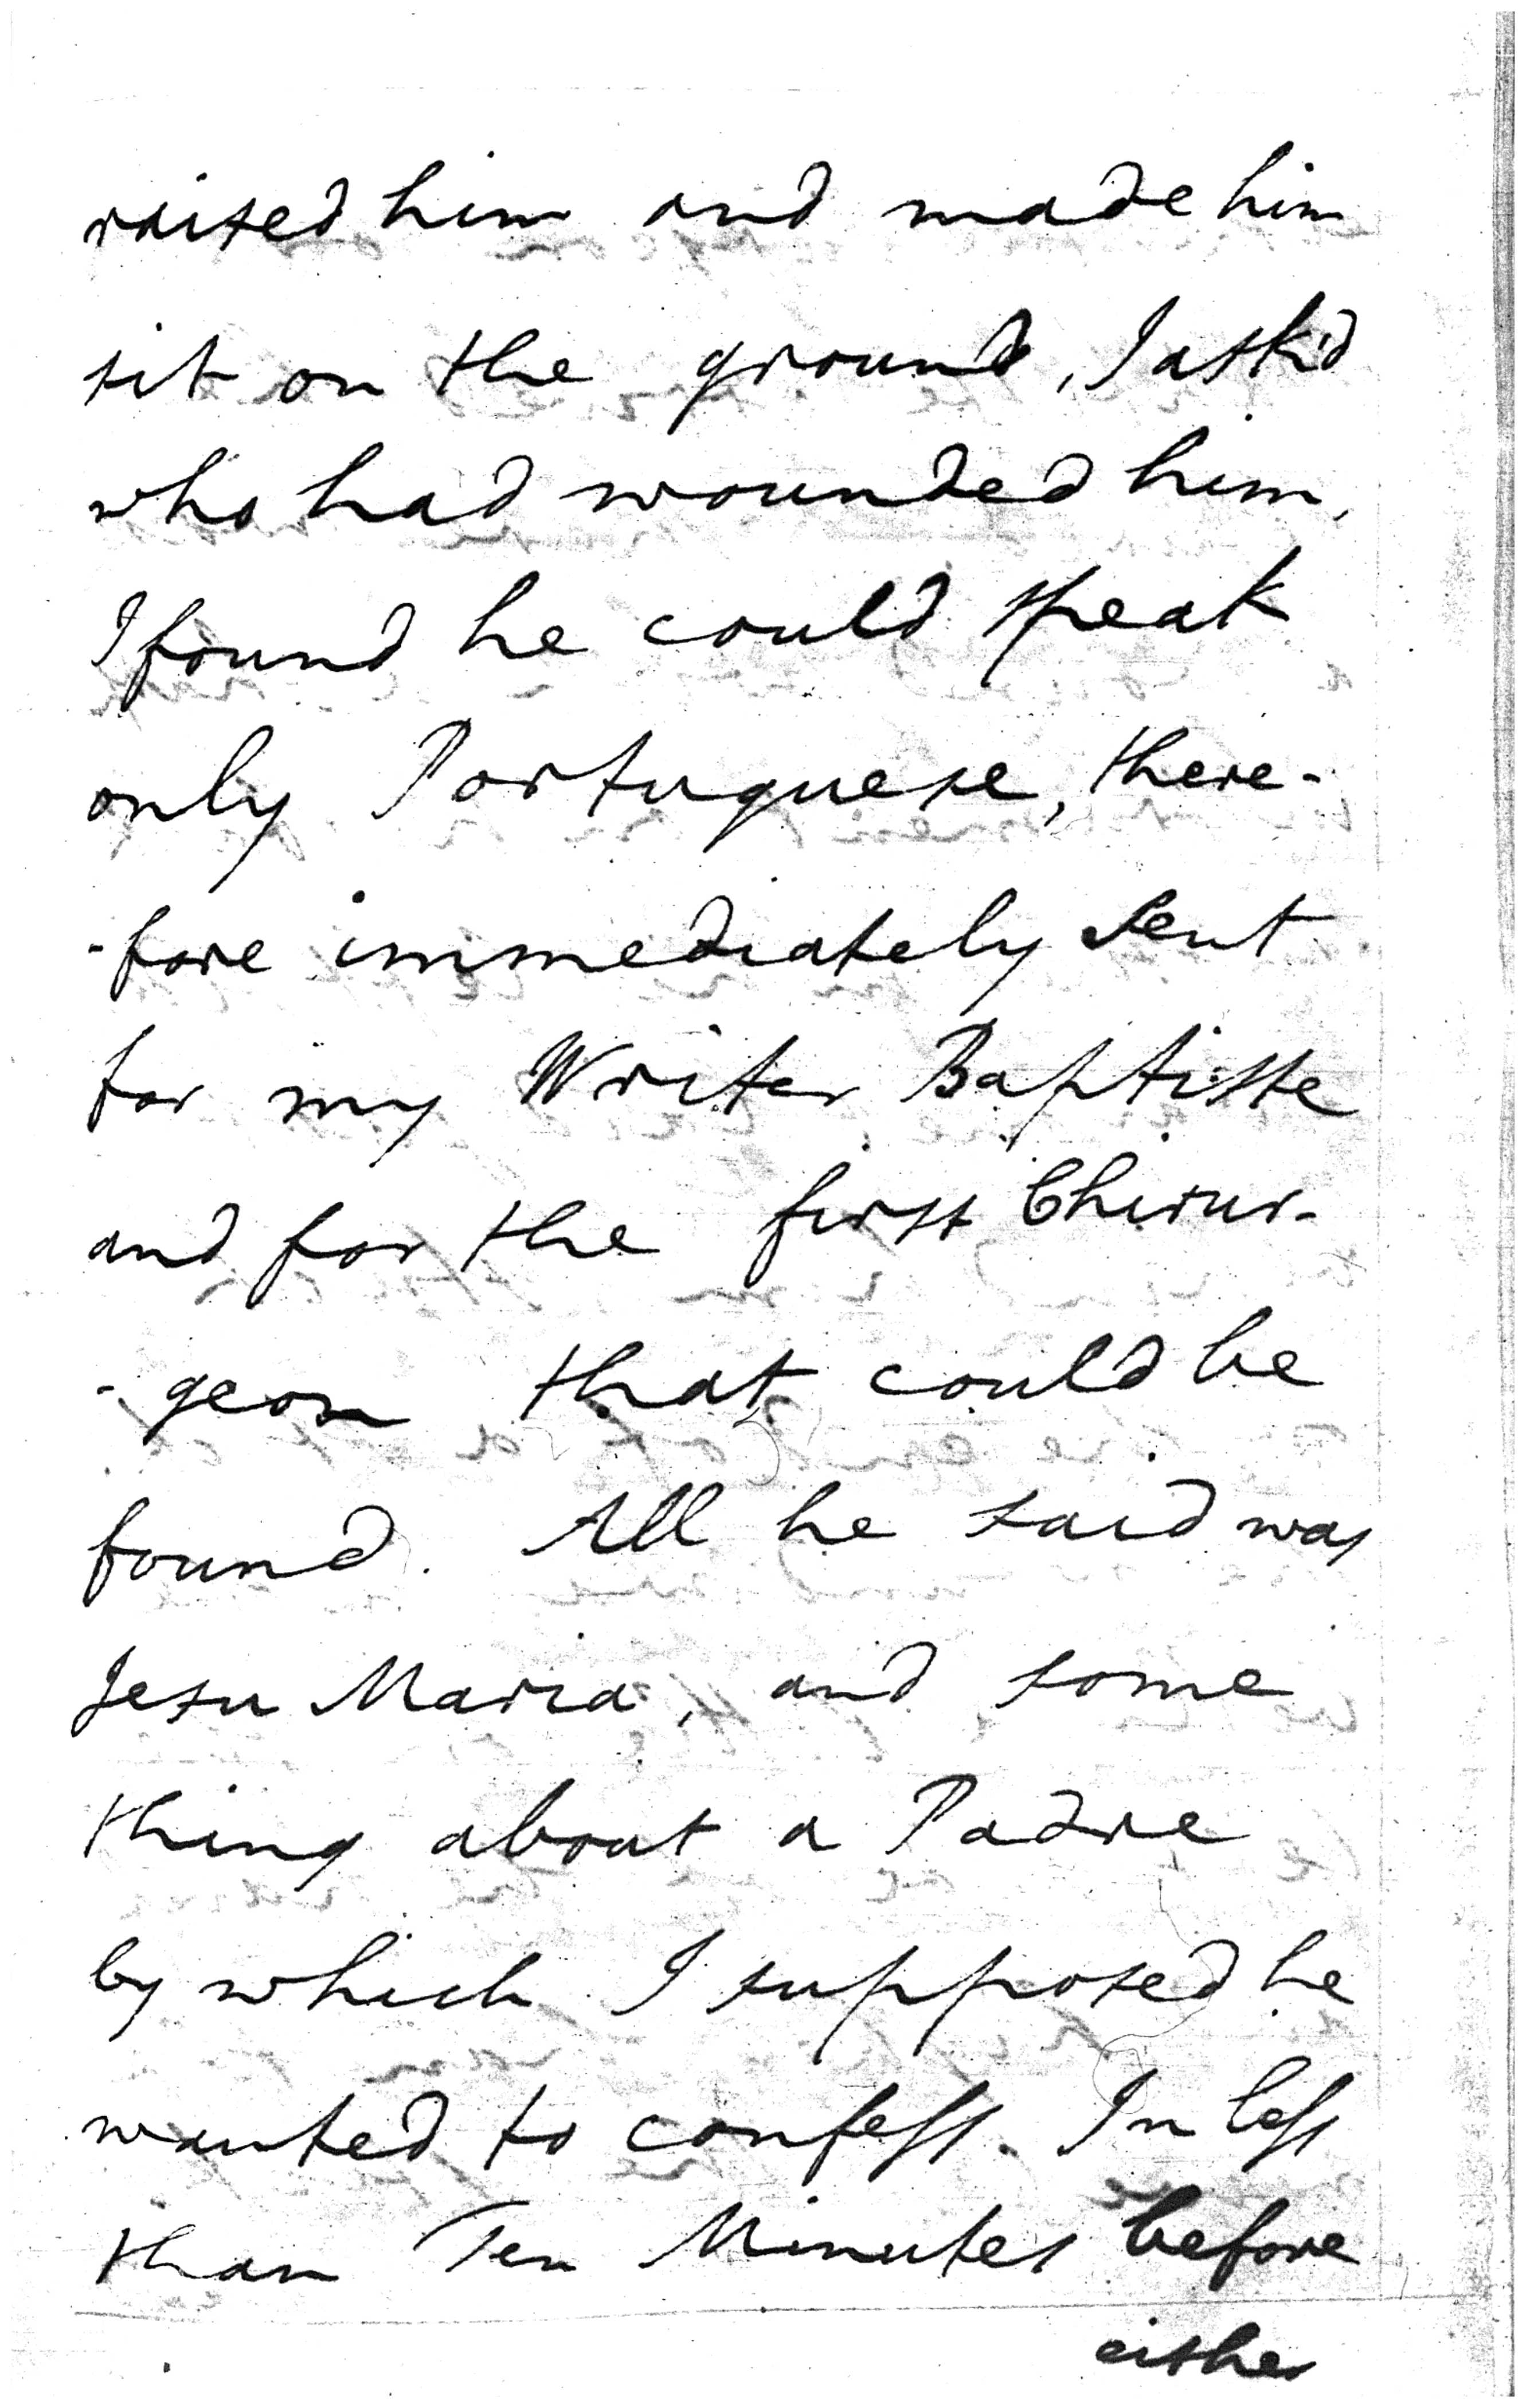 raised him and made him
sit on the ground, I ask'd
who had wounded him,
I found he could speak
only Portuguese, there-
-fore immediately sent
for my Writer Baptiste
and for the first Chirur-
-geon that could be
found. All he said was
Jesu Maria, and some
thing about a Padre
by which I supposed he
wanted to confess. In less
than Ten Minutes before
either